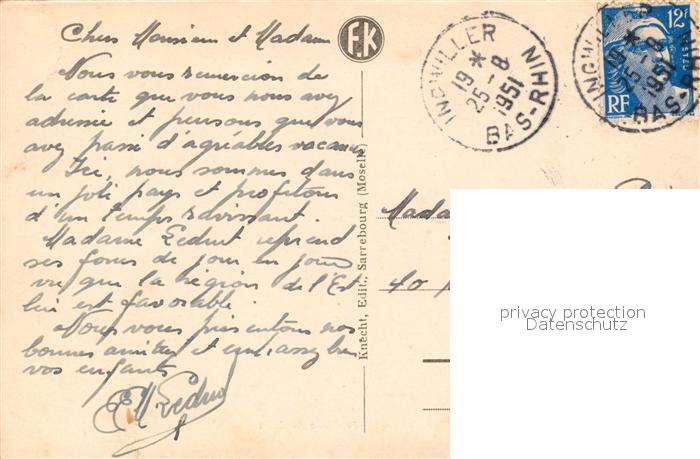 Chers Monsieur et Madame
Nous vous remercions de
la carte que vous nous avez
adressée et pensons que vous
avez passé d'agréables vacances
Ici, nous sommes dans
un joli pays et profitons
d'un temps ravissant.
Madame Leduc reprend
ses forces de jour en jour
vu que la région de l'Est
lui est favorable.
Nous vous présentons nos
bonnes amitiés et embrassez bien
vos enfants
Leduc
F.K
Knecht, Edit., Sarrebourg (Moselle)
INGWILLER
19 *
25-8
1951
BAS-RHIN
INGWILLER
19 *
25-8
1951
BAS-RHIN
12F
RF
Mada
40
privacy protection
Datenschutz